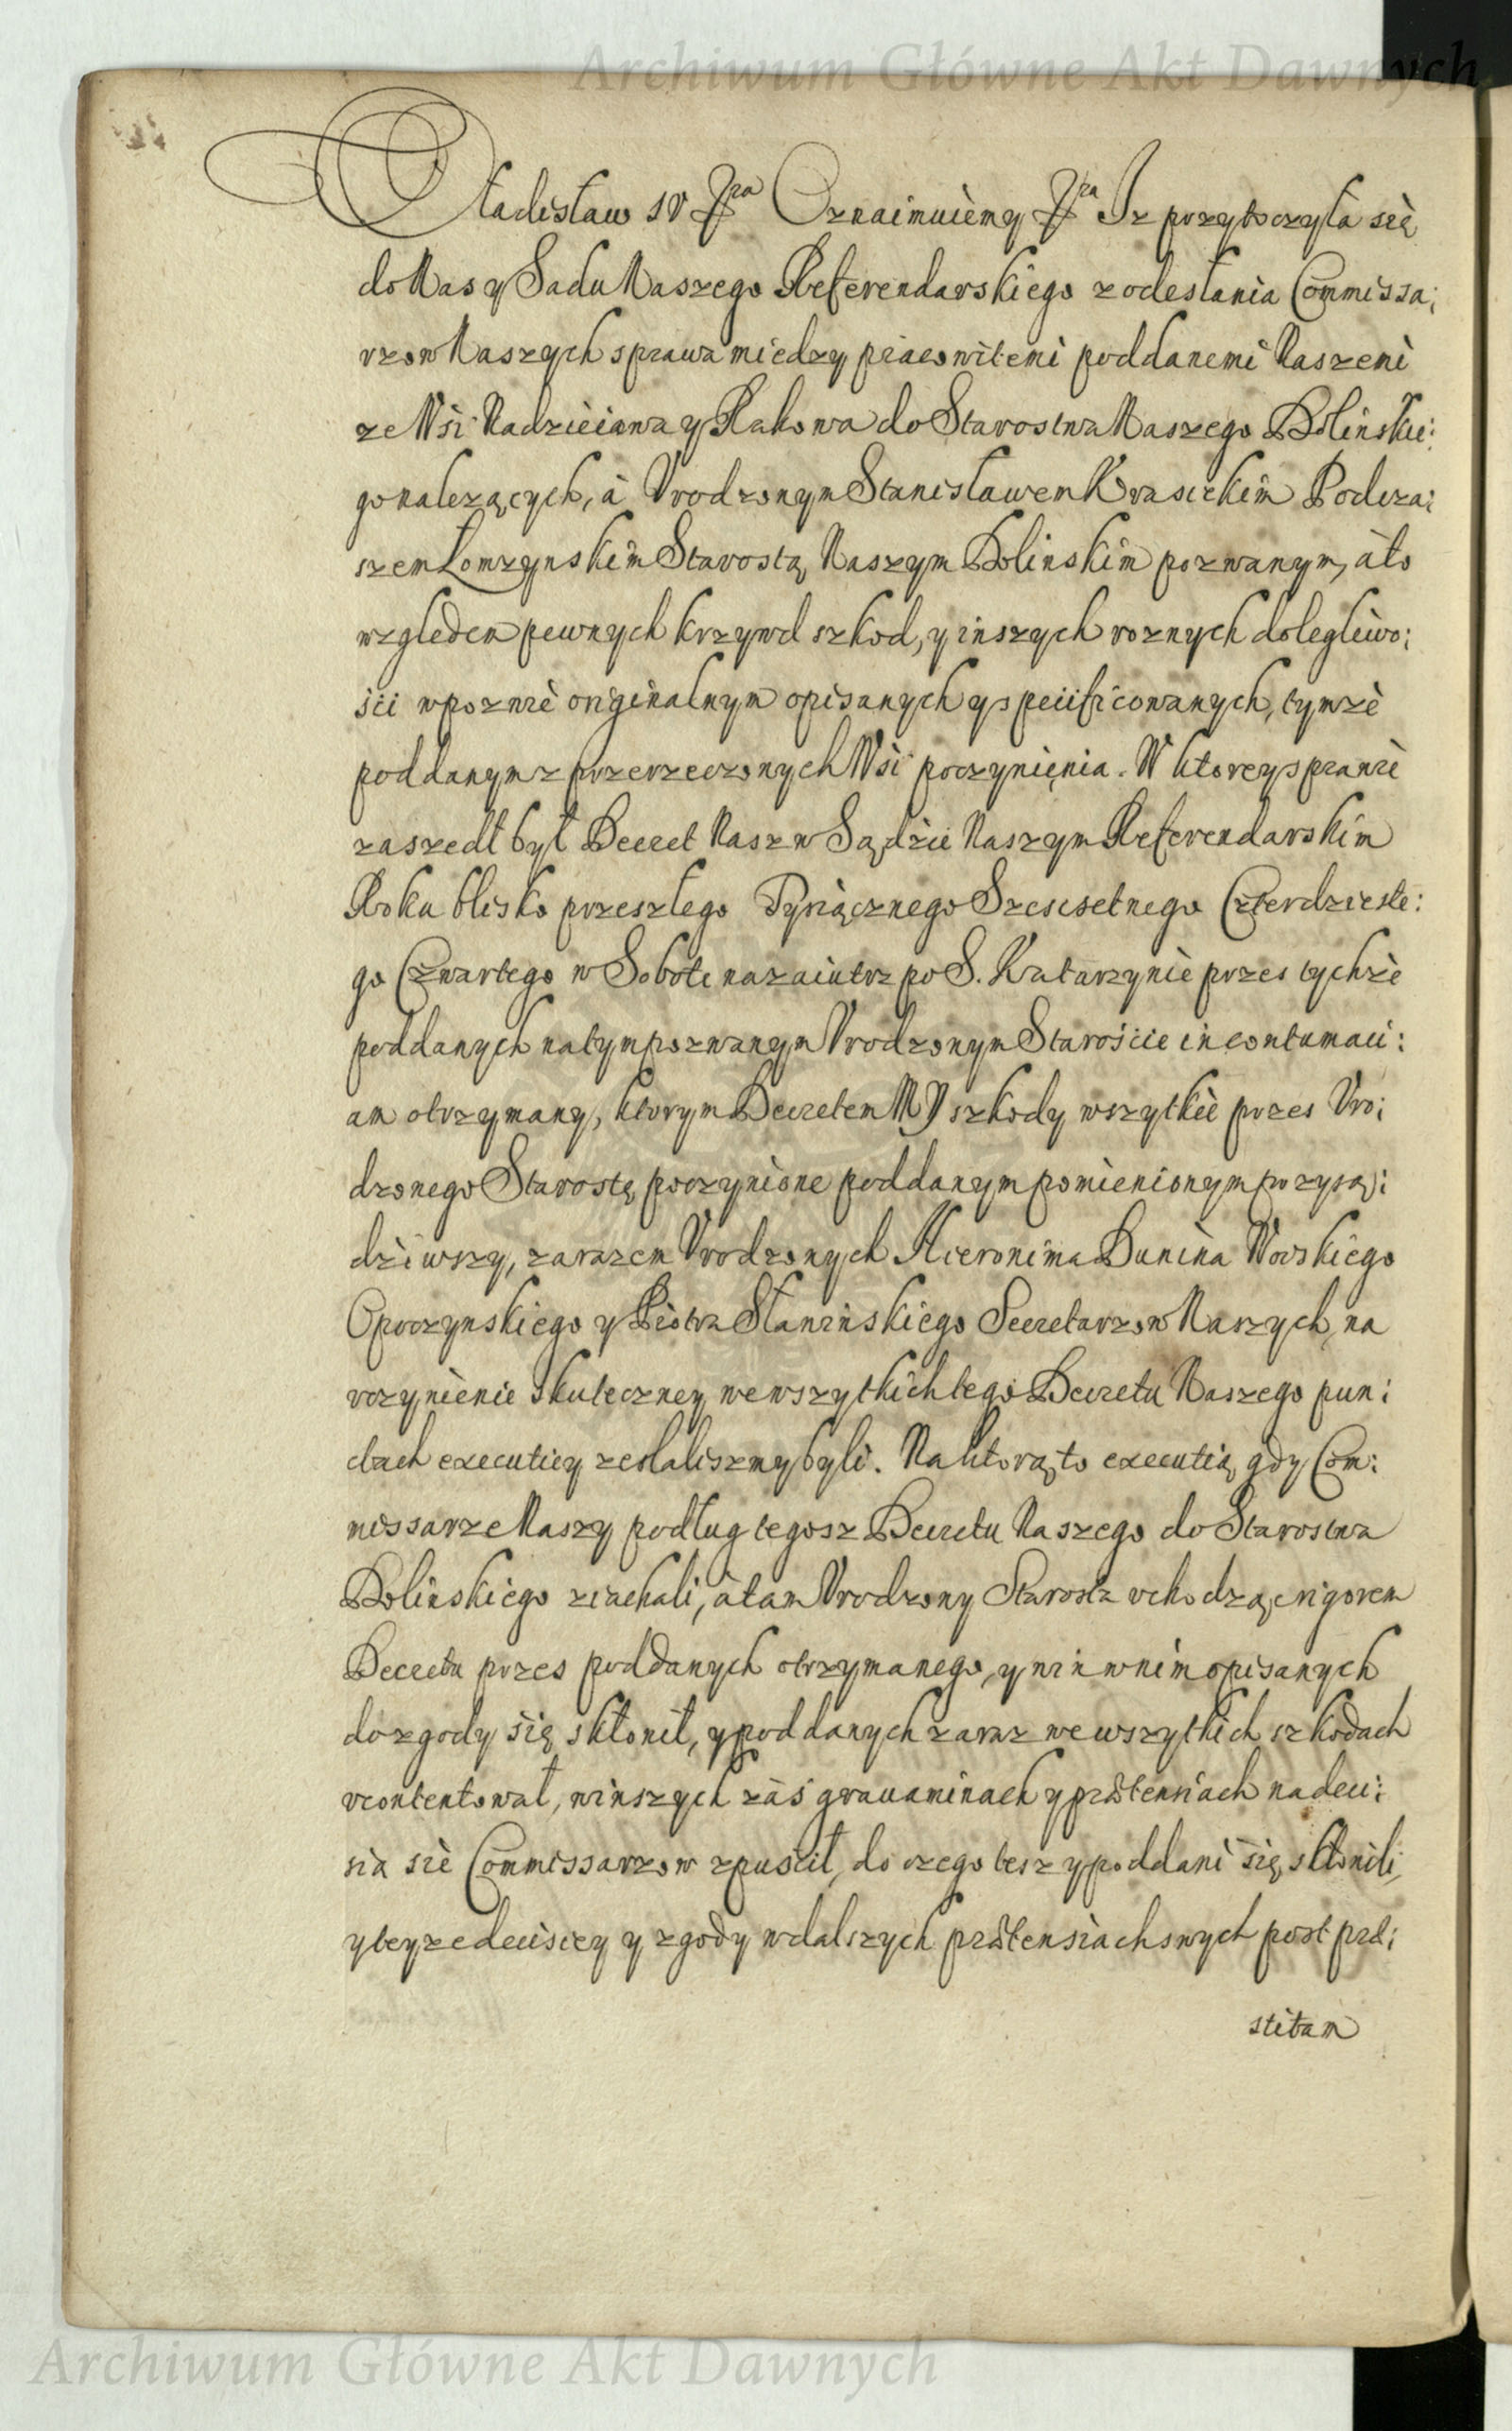 Archiwum Główne Akt Dawnych
Vladisław IV etc. Oznaimuiemy etc. Iz przytoczyła się
do Nas y Sadu Naszego Referendarskiego z odesłania Commissa:
rzow Naszych sprawa miedzy pracowitemi poddanemi Naszemi
ze Wsi Nadzieiowa y Rakowa do Starostwa Naszego Dolinskie:
go nalezących, à Vrodzonym Stanisławem Krasickim Podcza:
szem Łomzynskim Starostą Naszym Dolinskim pozwanym, à to
względem pewnych krzywd szkod, y inszych roznych dolegliwo:
ści w pozwie originalnym opisanych y specificowanych, tymże
poddanym z przerzeczonych Wsi poczynienia. W ktorey sprawie
zaszedł był Decret Nasz w Sądzie Naszym Referendarskim
Roku blisko przeszłego Tysiącznego Szescsetnego Czterdzieste:
go Czwartego w Sobote nazaiutrz po S. Katarzynie przes tychże
poddanych na tym pozwanym Vrodzonym Starośćie in contumaci:
am otrzymany, ktorym Decretem MY szkody wszytkie przes Vro:
dzonego Starostę poczynione poddanym pomienionym przysą:
dziwszy, zarazem Vrodzonych Hieronima Dunina Woyskiego
Opoczynskiego y Piotra Słaninskiego Secretarzow Naszych, na
vczynienie skuteczney we wszytkich tego Decretu Naszego pun:
ctach executiey zesłaliszmy byli. Na ktorą to executią gdy Com:
missarze Naszy podług tegosz Decretu Naszego do Starostwa
Dolinskiego ziachali, à tam Vrodzony Starosta vchodząc rigorem
Decretu przes poddanych otrzymanego, y win w nim opisanych
do zgody się skłonił, y poddanych zaraz we wszytkich szkodach
vcontentował, w inszych zaś grauaminach y prætensiach na deci:
sią sie Commissarzow zpuscił, do czego tesz y poddani się skłonili,
y tey ze decisiey y zgody w dalszych prætensiach swych post præ:
stitam
Archiwum Główne Akt Dawnych